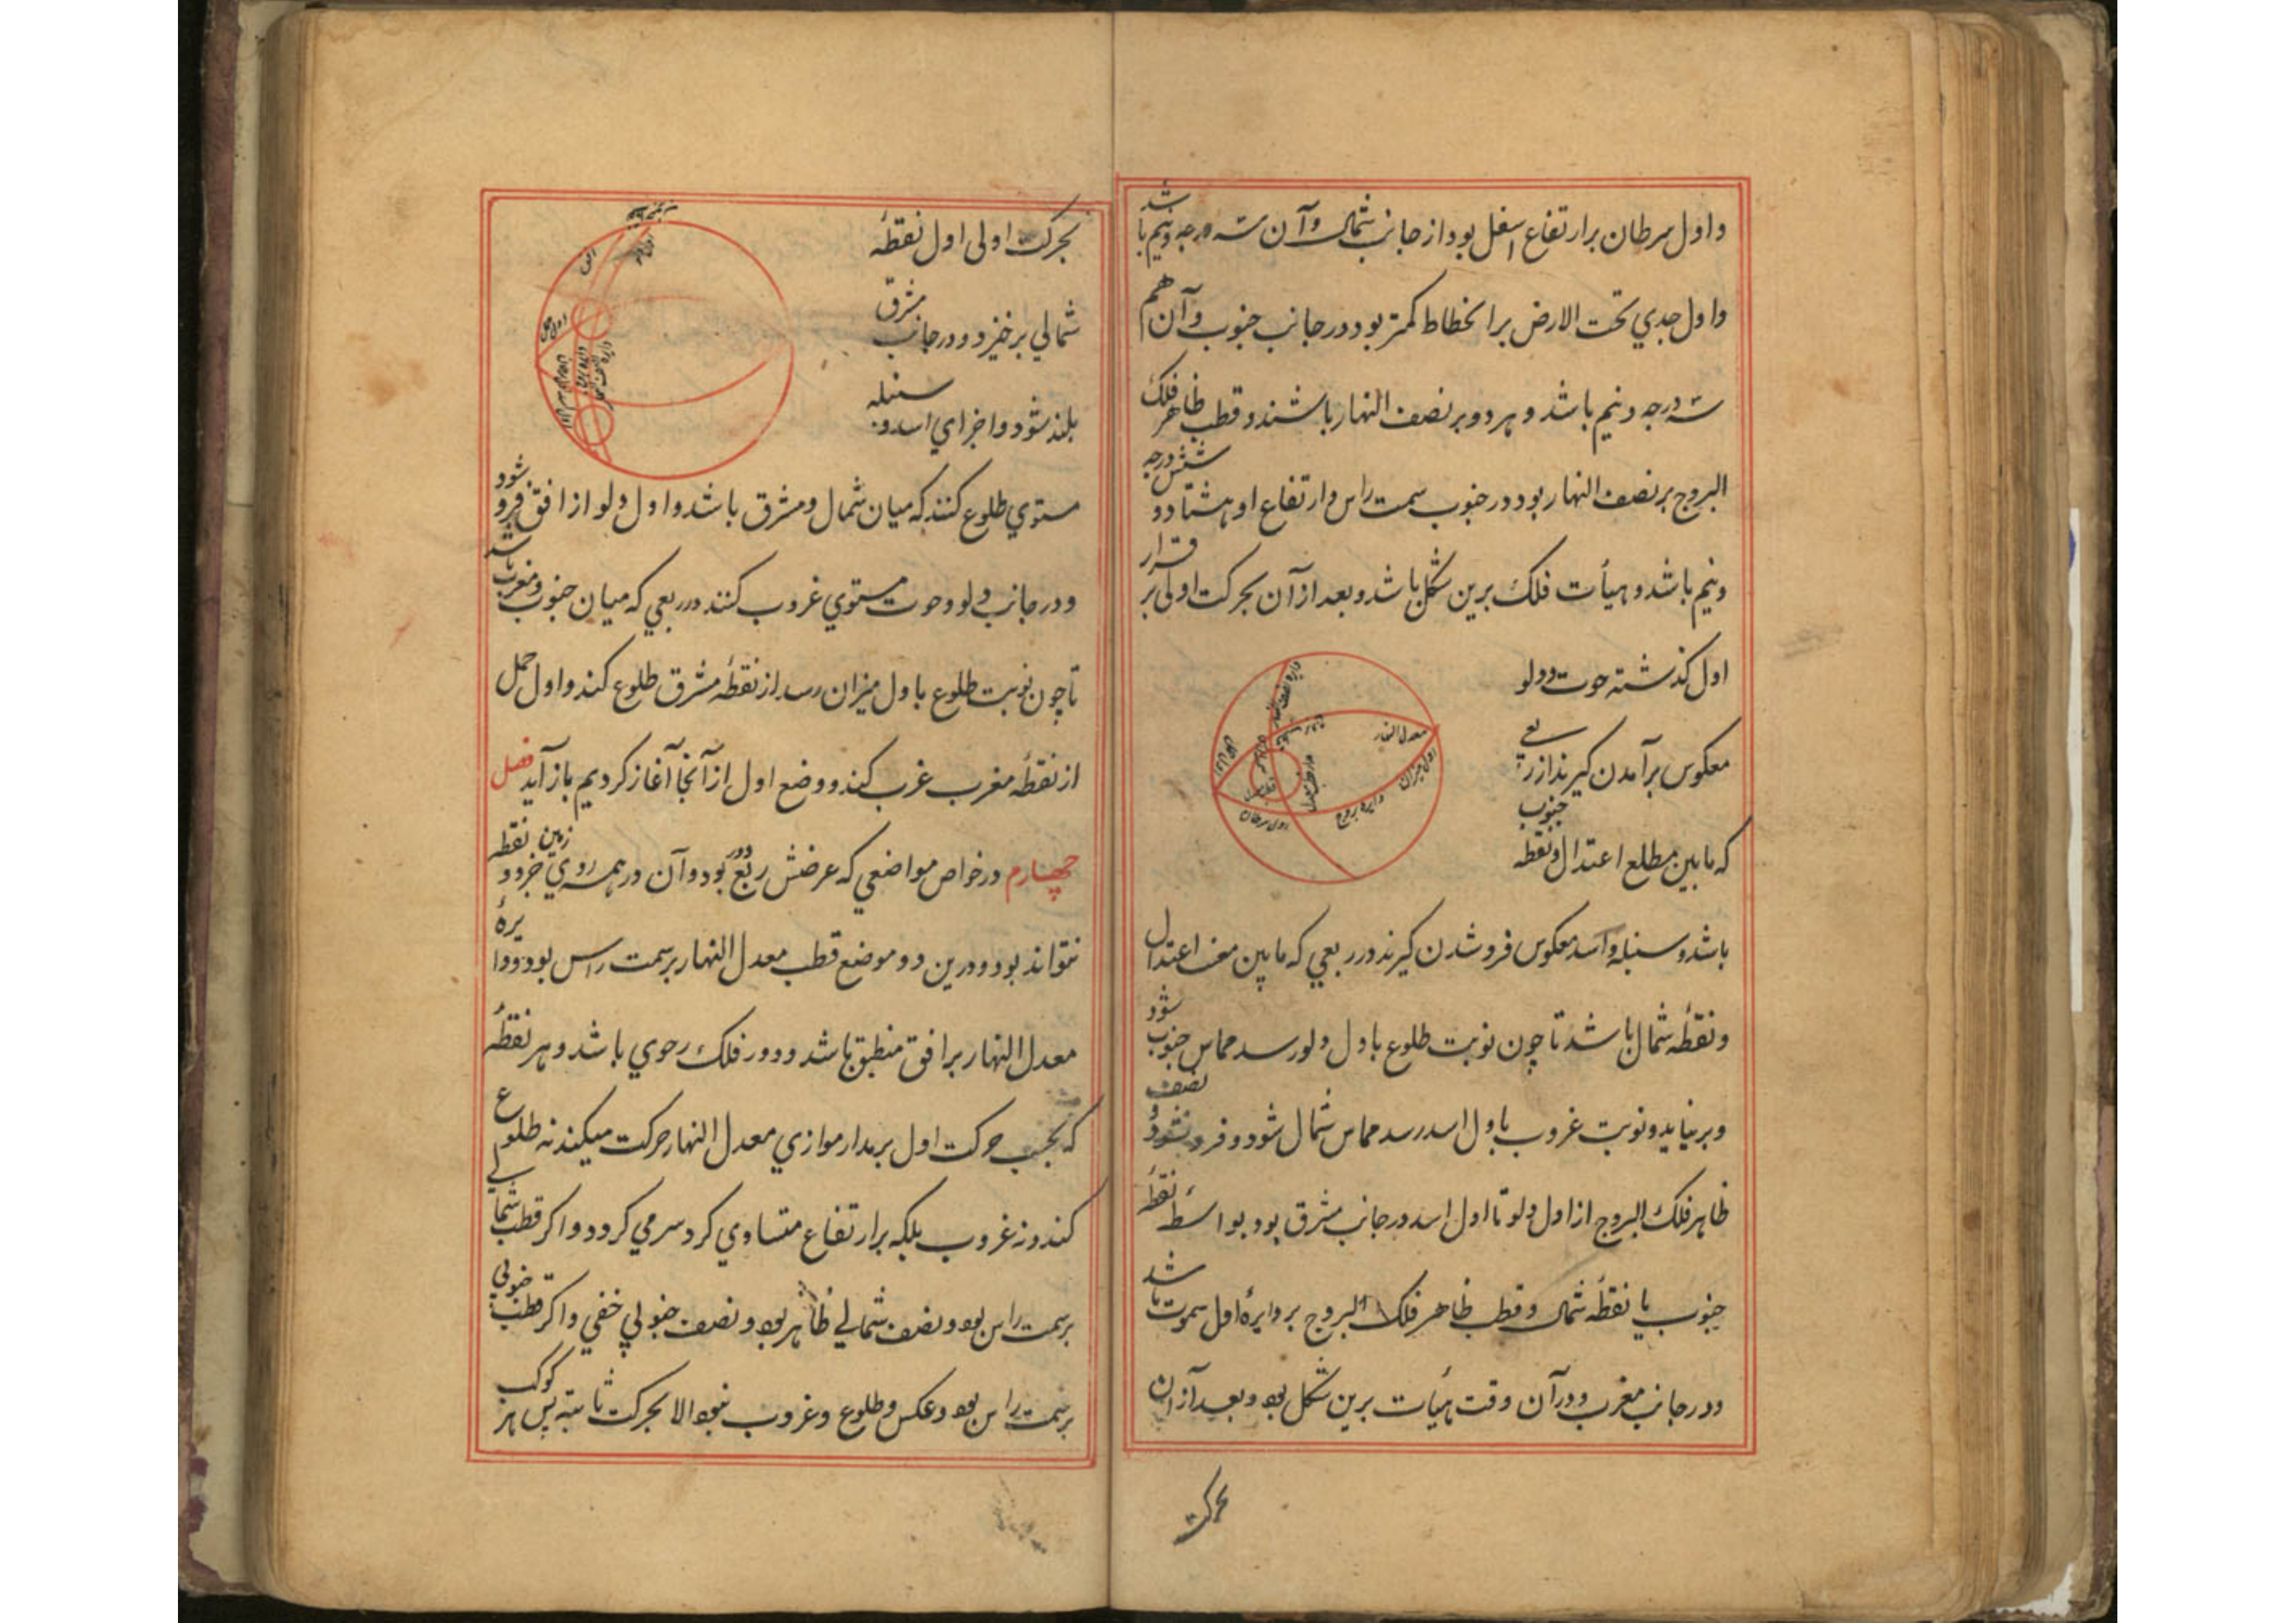 و اول سرطان بر ارتفاع اسفل بود از جانب شمال و آن سه درجه و نیم باشد
و اول جدي تحت الارض بر انحطاط کمتر بود در جانب جنوب و آن هم
سه درجه و نیم باشد و هر دو بر نصف النهار باشند و قطب ظاهر فلک
البروج بر نصف النهار بود در جنوب سمت راس و ارتفاع او هشتاد و شش درجه
و نیم باشد و هیأت فلک برین شکل باشد و بعد از آن بحرکت اولی بر قرار
اول گذشته حوت و دلو
معکوس برآمدن گیرند از ربعی
که مابین مطلع اعتدال و نقطه جنوب
دایره نصف النهار
معدل النهار
اول میزان
دایره بروج
اول سرطان
باشد و سنبله و اسد معکوس فرو شدن گیرند در ربعي که مابین مغب اعتدال
و نقطهٔ شمال باشد تا چون نوبت طلوع باول دلو رسد مماس جنوب شود
و برنیاید و نوبت غروب باول اسد رسد مماس شمال شود و فرو نشود و نصف
ظاهر فلک البروج از اول دلو تا اول اسد در جانب مشرق بود بواسطهٔ نقطهٔ
جنوب یا نقطهٔ شمال و قطب ظاهر فلک البروج بر دایرهٔ اول سموت باشد
و در جانب مغرب و در آن وقت هیأت برین شکل بود و بعد از آن
بحرکت
بحرکت اولی اول نقطهٔ
شمالي برخیزد و در جانب مشرق
بلند شود و اجزاي اسد و سنبله
اول حمل
افق
مستوي طلوع کنند که میان شمال و مشرق باشد و اول دلو از افق فرو شود
و در جانب دلو و حوت مستوي غروب کنند در ربعي که میان جنوب و مغرب باشد
تا چون نوبت طلوع باول میزان رسد از نقطهٔ مشرق طلوع کند و اول حمل
از نقطهٔ مغرب غرب کند و وضع اول از آنجا آغاز کردیم باز آید فصل
چهارم در خواص مواضعي که عرضش ربع دور بود و آن در همه روي زمین جز دو نقطه
نتواند بود و درین دو موضع قطب معدل النهار بر سمت راس بود و دایرهٔ
معدل النهار بر افق منطبق باشد و دور فلک رحوي باشد و هر نقطهٔ
که بحسب حرکت اول بر مدار موازي معدل النهار حرکت میکند نه طلوع
کند و نه غروب بلکه بر ارتفاع متساوي گرد سر می گردد و اگر قطب شمالے
بر سمت راس بود و نصف شمالے ظاهر بود و نصف جنوبي خفي و اگر قطب جنوبي
بر سمت راس بود و عکس و طلوع و غروب نبود الا بحرکت ثابته پس هر کوکب